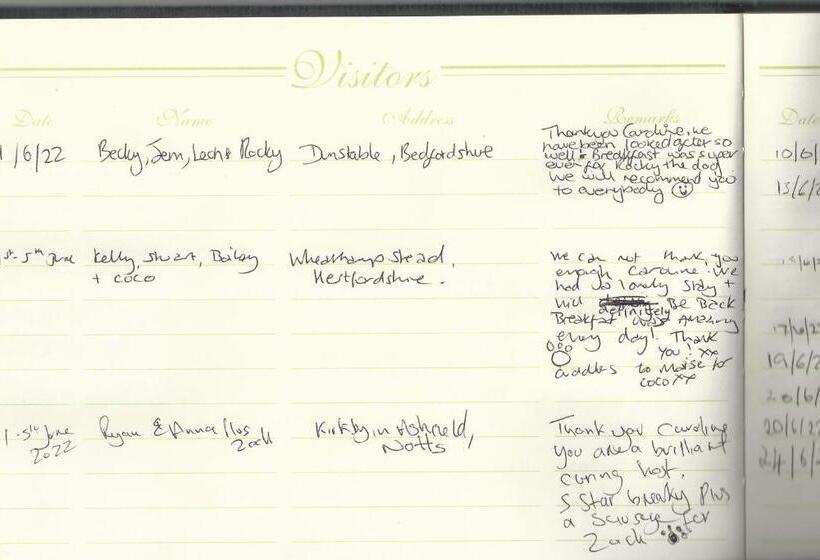 Visitors
Date Name Address Remarks Date
1/6/22 Becky, Jem, Leah & Rocky Dunstable, Bedfordshire
Thankyou Caroline, we
have been looked after so
well. Breakfast was super
even for Rocky the dog
We will recommend you
to everybody
10/6/
15/6/2
1st - 5th June Kelly, Stuart, Bailey
+ COCO
Wheathampstead,
Hertfordshire.
We can not thank you
enough Caroline. We
had so lovely stay +
will definitely Be Back
Breakfast was Amazing
every day! Thank
You! xx
cuddles to Maise for
COCO xx
17/6/2
19/6/2
20/6/
20/6/22
24/6/2
1-5th June
2022
Ryan & Anna Plus
Zach
Kirkby in Ashfield,
Notts
Thank you Caroline
You are a brilliant
caring host.
5 Star breaky Plus
a Sausage for
Zach